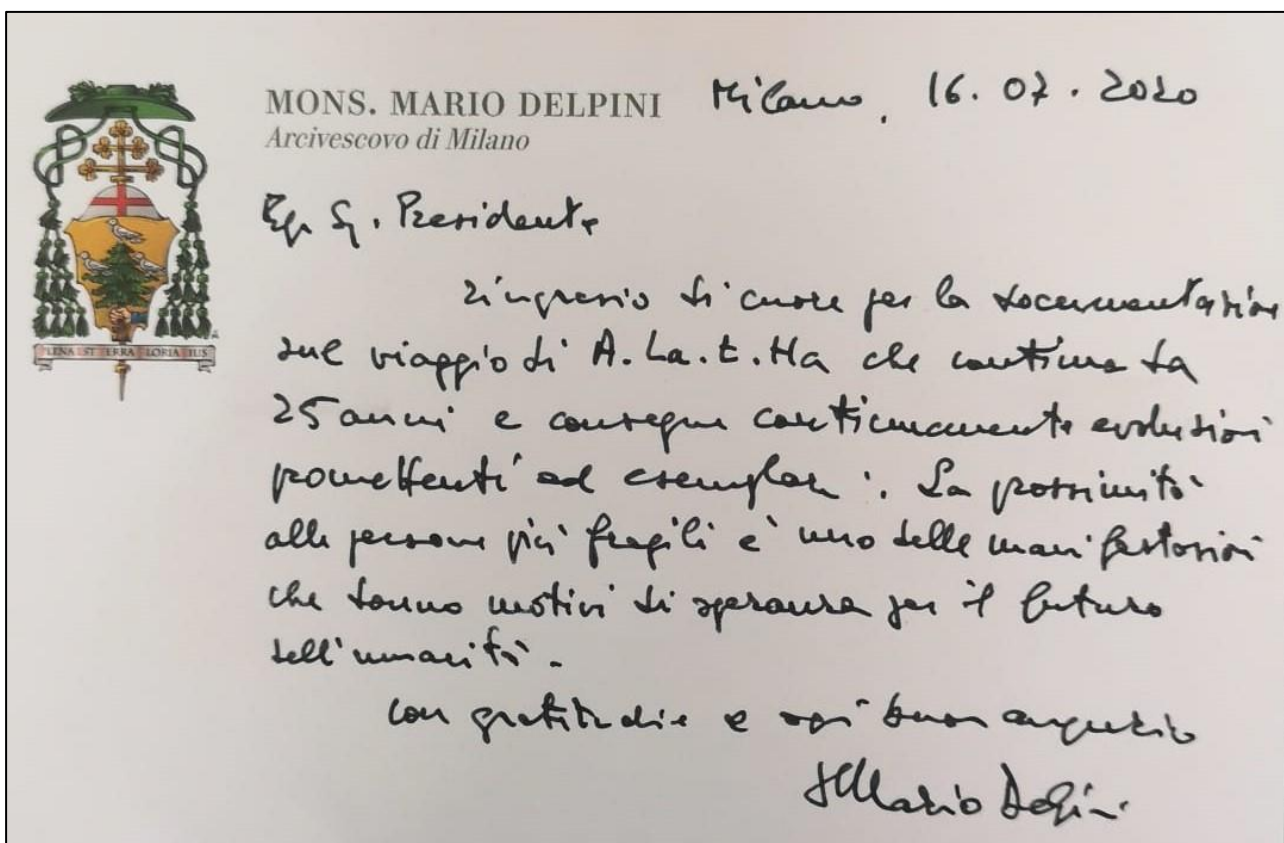 MONS. MARIO DELPINI
Arcivescovo di Milano
Milano, 16.07.2020
Eg. Sg. Presidente
ringrazio di cuore per la documentazione
sul viaggio di A.La.t.Ha che continua da
25 anni e consegue continuamente evoluzioni
promettenti ed esemplari. La prossimità
alle persone più fragili è uno delle manifestazioni
che danno motivi di speranza per il futuro
dell'umanità.
con gratitudine e ogni buon augurio
+ Mario Delpini
LENA ST ERRA LORIA IUS